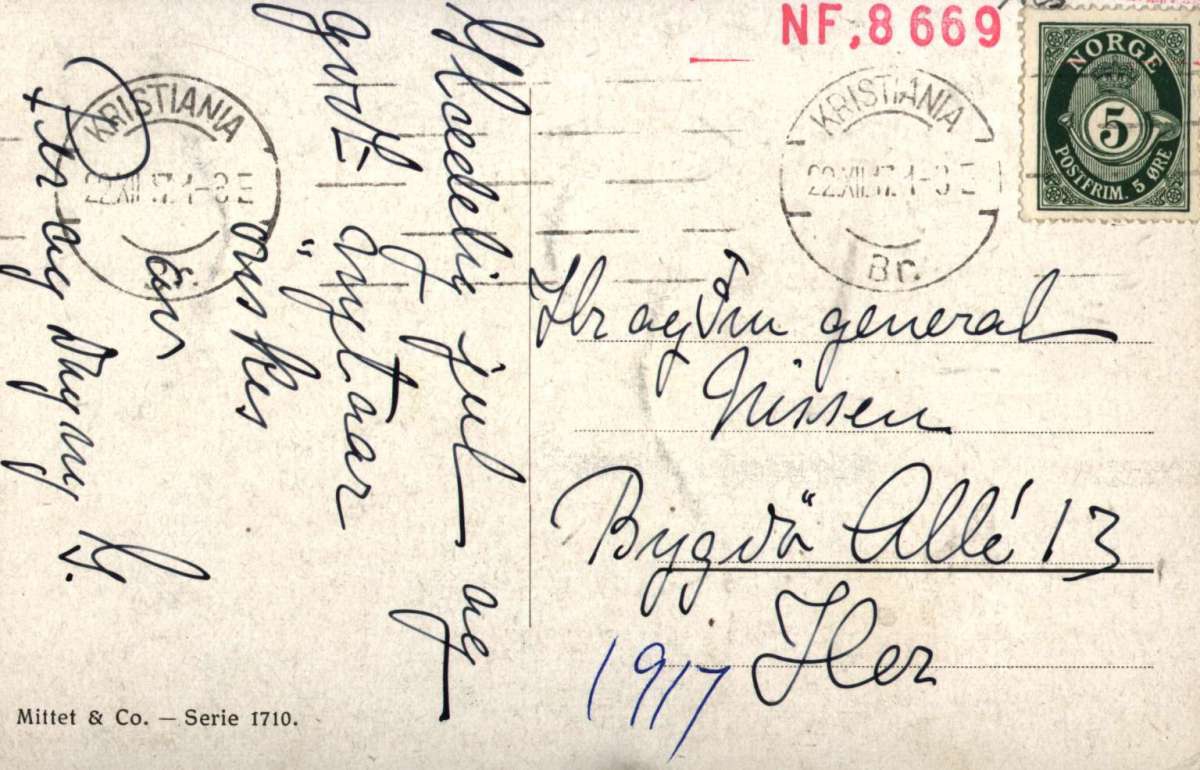 NF.8669
NORGE
5
POSTFRIM. 5 ØRE
KRISTIANIA
22.XII.17. 1-3 E
Br.
KRISTIANIA
22.XII.17. 1-3 E
Glædelig jul og
godt nytaar
ønskes
av
Hr og frú general
Nissen
Bygdö Allé 13
Her
1917
Mittet & Co. — Serie 1710.